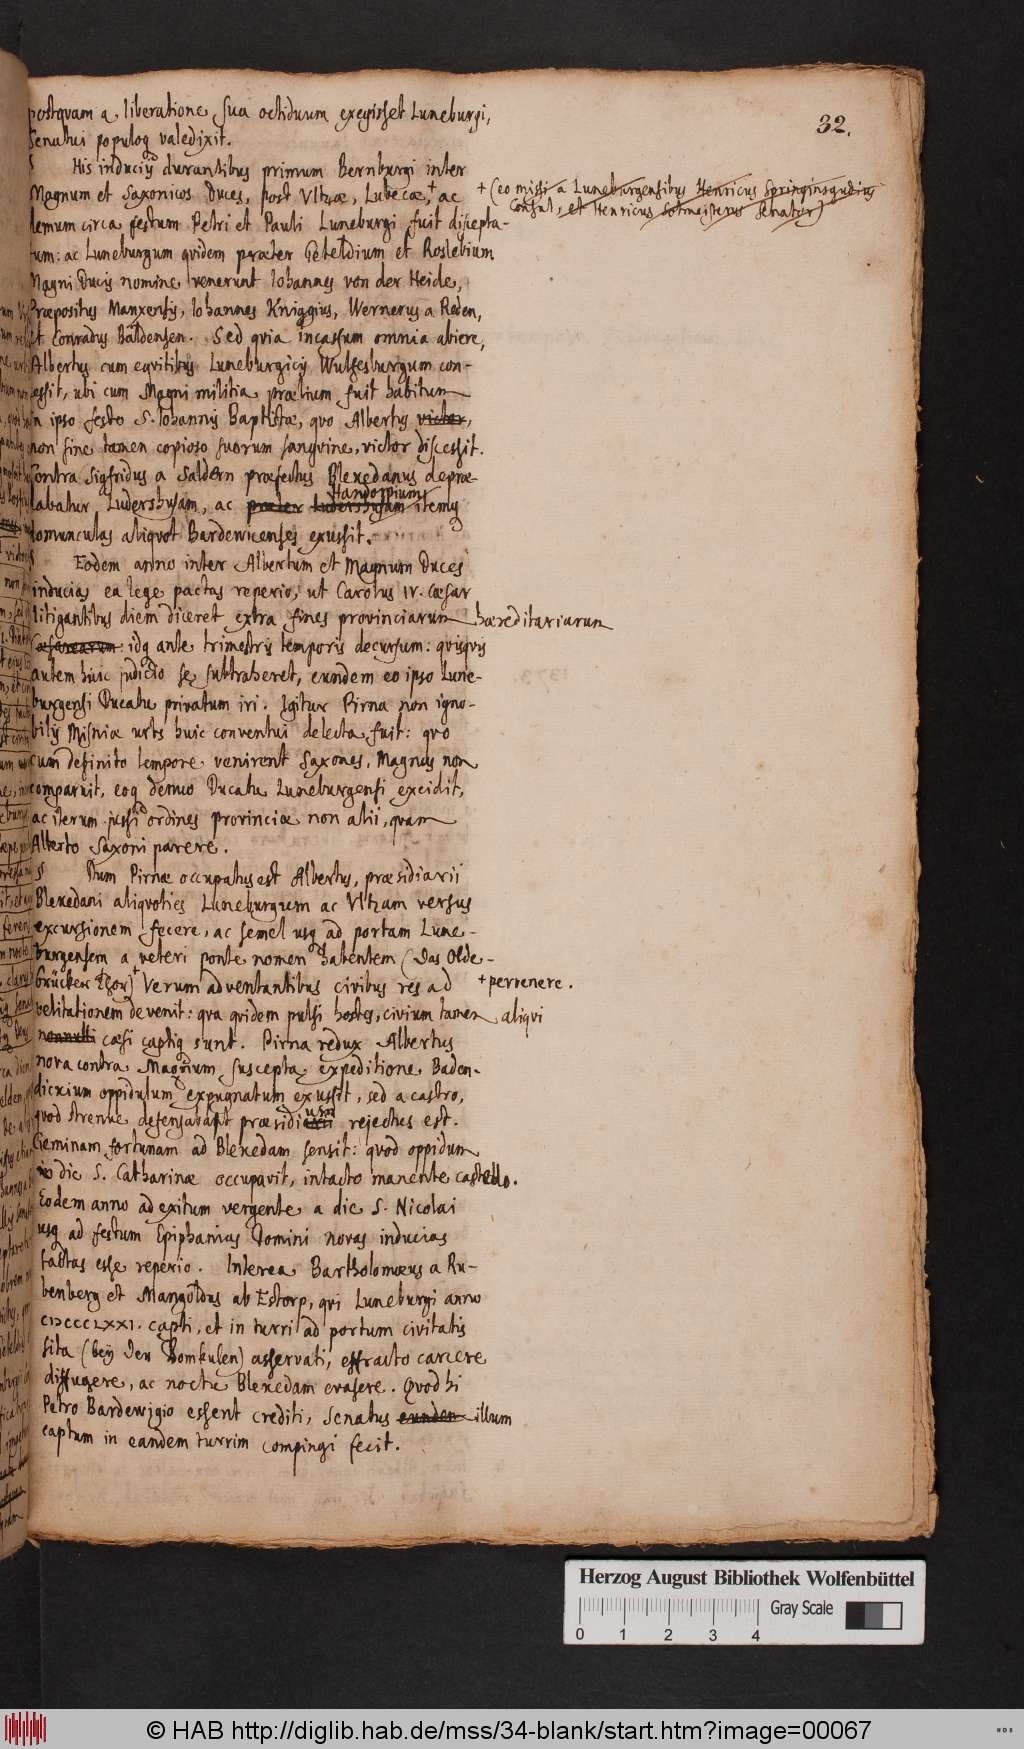 32.
postquam a liberatione sua octiduum exegisset Luneburgi,
Senatui populoq valedixit.
§ His inducijs durantibus primum Bernburgi inter
Magnum et Saxonicos Duces, post Vltzæ, Lubecæ,+ ac
demum circa festum Petri et Pauli Luneburgi fuit discepta-
tum: ac Luneburgum quidem præter Geteldium et Roslebium
Magni Ducis nomine venerunt Iohannes von der Heide,
Præpositus Manxensis, Iohannes Kniggius, Wernerus a Reden,
et Conradus Baldensen. Sed quia incassum omnia abiere,
Albertus cum equitibus Luneburgicis Wulfesburgum con-
cessit, ubi cum Magni militia prælium fuit habitum
in ipso festo S. Iohannis Baptistæ, quo Albertus victor,
non sine tamen copioso suorum sanguine, victor discessit.
Contra Sigfridus a Saldern præfectus Blekedanus depræ-
Handorpium
dabatur Ludershusam, ac præter Ludershusam itemq
domunculas aliquot Bardewicenses exussit.
§ Eodem anno inter Albertum et Magnum Duces
inducias ea lege pactas reperio, ut Carolus IV. Cæsar
litigantibus diem diceret extra fines provinciarum hæreditariarum
Cæsarearum: idq ante trimestris temporis decursum: quisquis
autem huic judicio se subtraheret, eundem eo ipso Lune-
burgensi Ducatu privatum iri. Igitur Pirna non igno-
bilis Misniæ urbs huic conventui delecta fuit: quo
cum definito tempore venirent Saxones, Magnus non
comparuit, eoq denuo Ducatu Luneburgensi excidit,
ac iterum jussi ordines provinciæ non alii, quam
Alberto Saxoni parere.
§ Dum Pirnæ occupatus est Albertus, præsidiarii
Blekedani aliquoties Luneburgum ac Vltzam versus
excursionem fecere, ac semel usq ad portam Lune-
burgensem a veteri ponte nomen habentem (Das Olde-
brücker Thor)+ Verum adventantibus civibus res ad
+ pervenere.
velitationem devenit: qua quidem pulsi hostes, civium tamen aliqui
nonnulli cæsi captiq sunt. Pirna redux Albertus
nova contra Magnum suscepta expeditione Baden-
dickium oppidulum expugnatum exussit, sed a castro,
quod strenue defensabant præsidiarii rejectus est.
Geminam fortunam ad Blekedam sensit: quod oppidum
in die S. Catharinæ occupavit, intacto manente castello.
Eodem anno ad exitum vergente a die S. Nicolai
usq ad festum Epiphanias Domini novas inducias
factas esse reperio. Interea Bartholomæus a Ru-
benberg et Mangoldus ab Estorp, qui Luneburgi anno
CIƆCCCLXXI. capti, et in turri ad portum civitatis
sita (bey den Bomkulen) asservati, effracto carcere
diffugere, ac noctu Blekedam evasere. Quod hi
Petro Bardewigio essent crediti, Senatus eundem illum
captum in eandem turrim compingi fecit.
+ (eo missi a Luneburgensibus Henricus Springinsgudius
Consul, et Henricus Sotmeisterus Senator)
Herzog August Bibliothek Wolfenbüttel
Gray Scale
0 1 2 3 4
© HAB http://diglib.hab.de/mss/34-blank/start.htm?image=00067